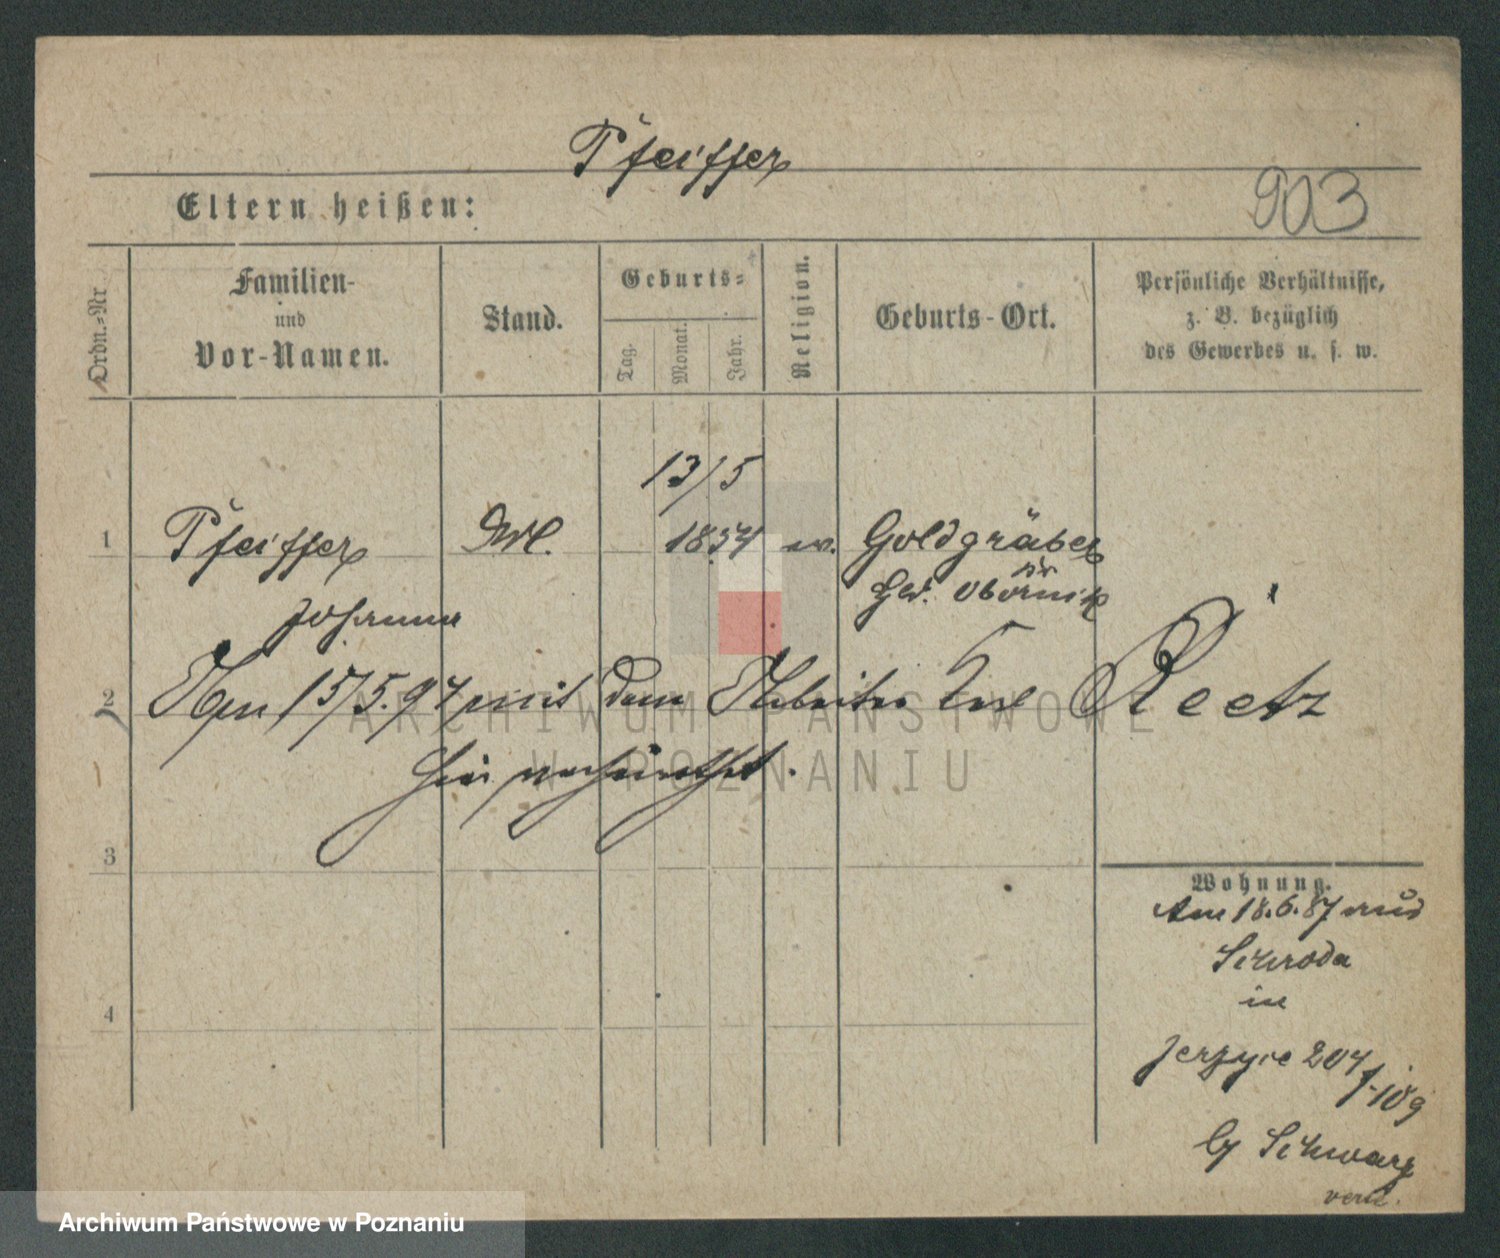 Pfeiffer
903
Eltern heißen:
Ordn.-Nr.
Familien-
und
Vor-Namen.
Stand.
Geburts-
Tag.
Monat.
Jahr.
Religion.
Geburts-Ort.
Persönliche Verhältnisse,
z. B. bezüglich
des Gewerbes u. s. w.
13/5
1 Pfeiffer 1854 ev. Goldgräber
Kr. Obornik
Johanna
2 Am 15/5.94 mit dem Arbeiter Reetz
hier verheirathet.
3
Wohnung.
Am 18.6.87 aus
Schroda
in
4
Jerzyce 204
by Schwarz
ARCHIWUM PAŃSTWOWE
W POZNANIU
Archiwum Państwowe w Poznaniu